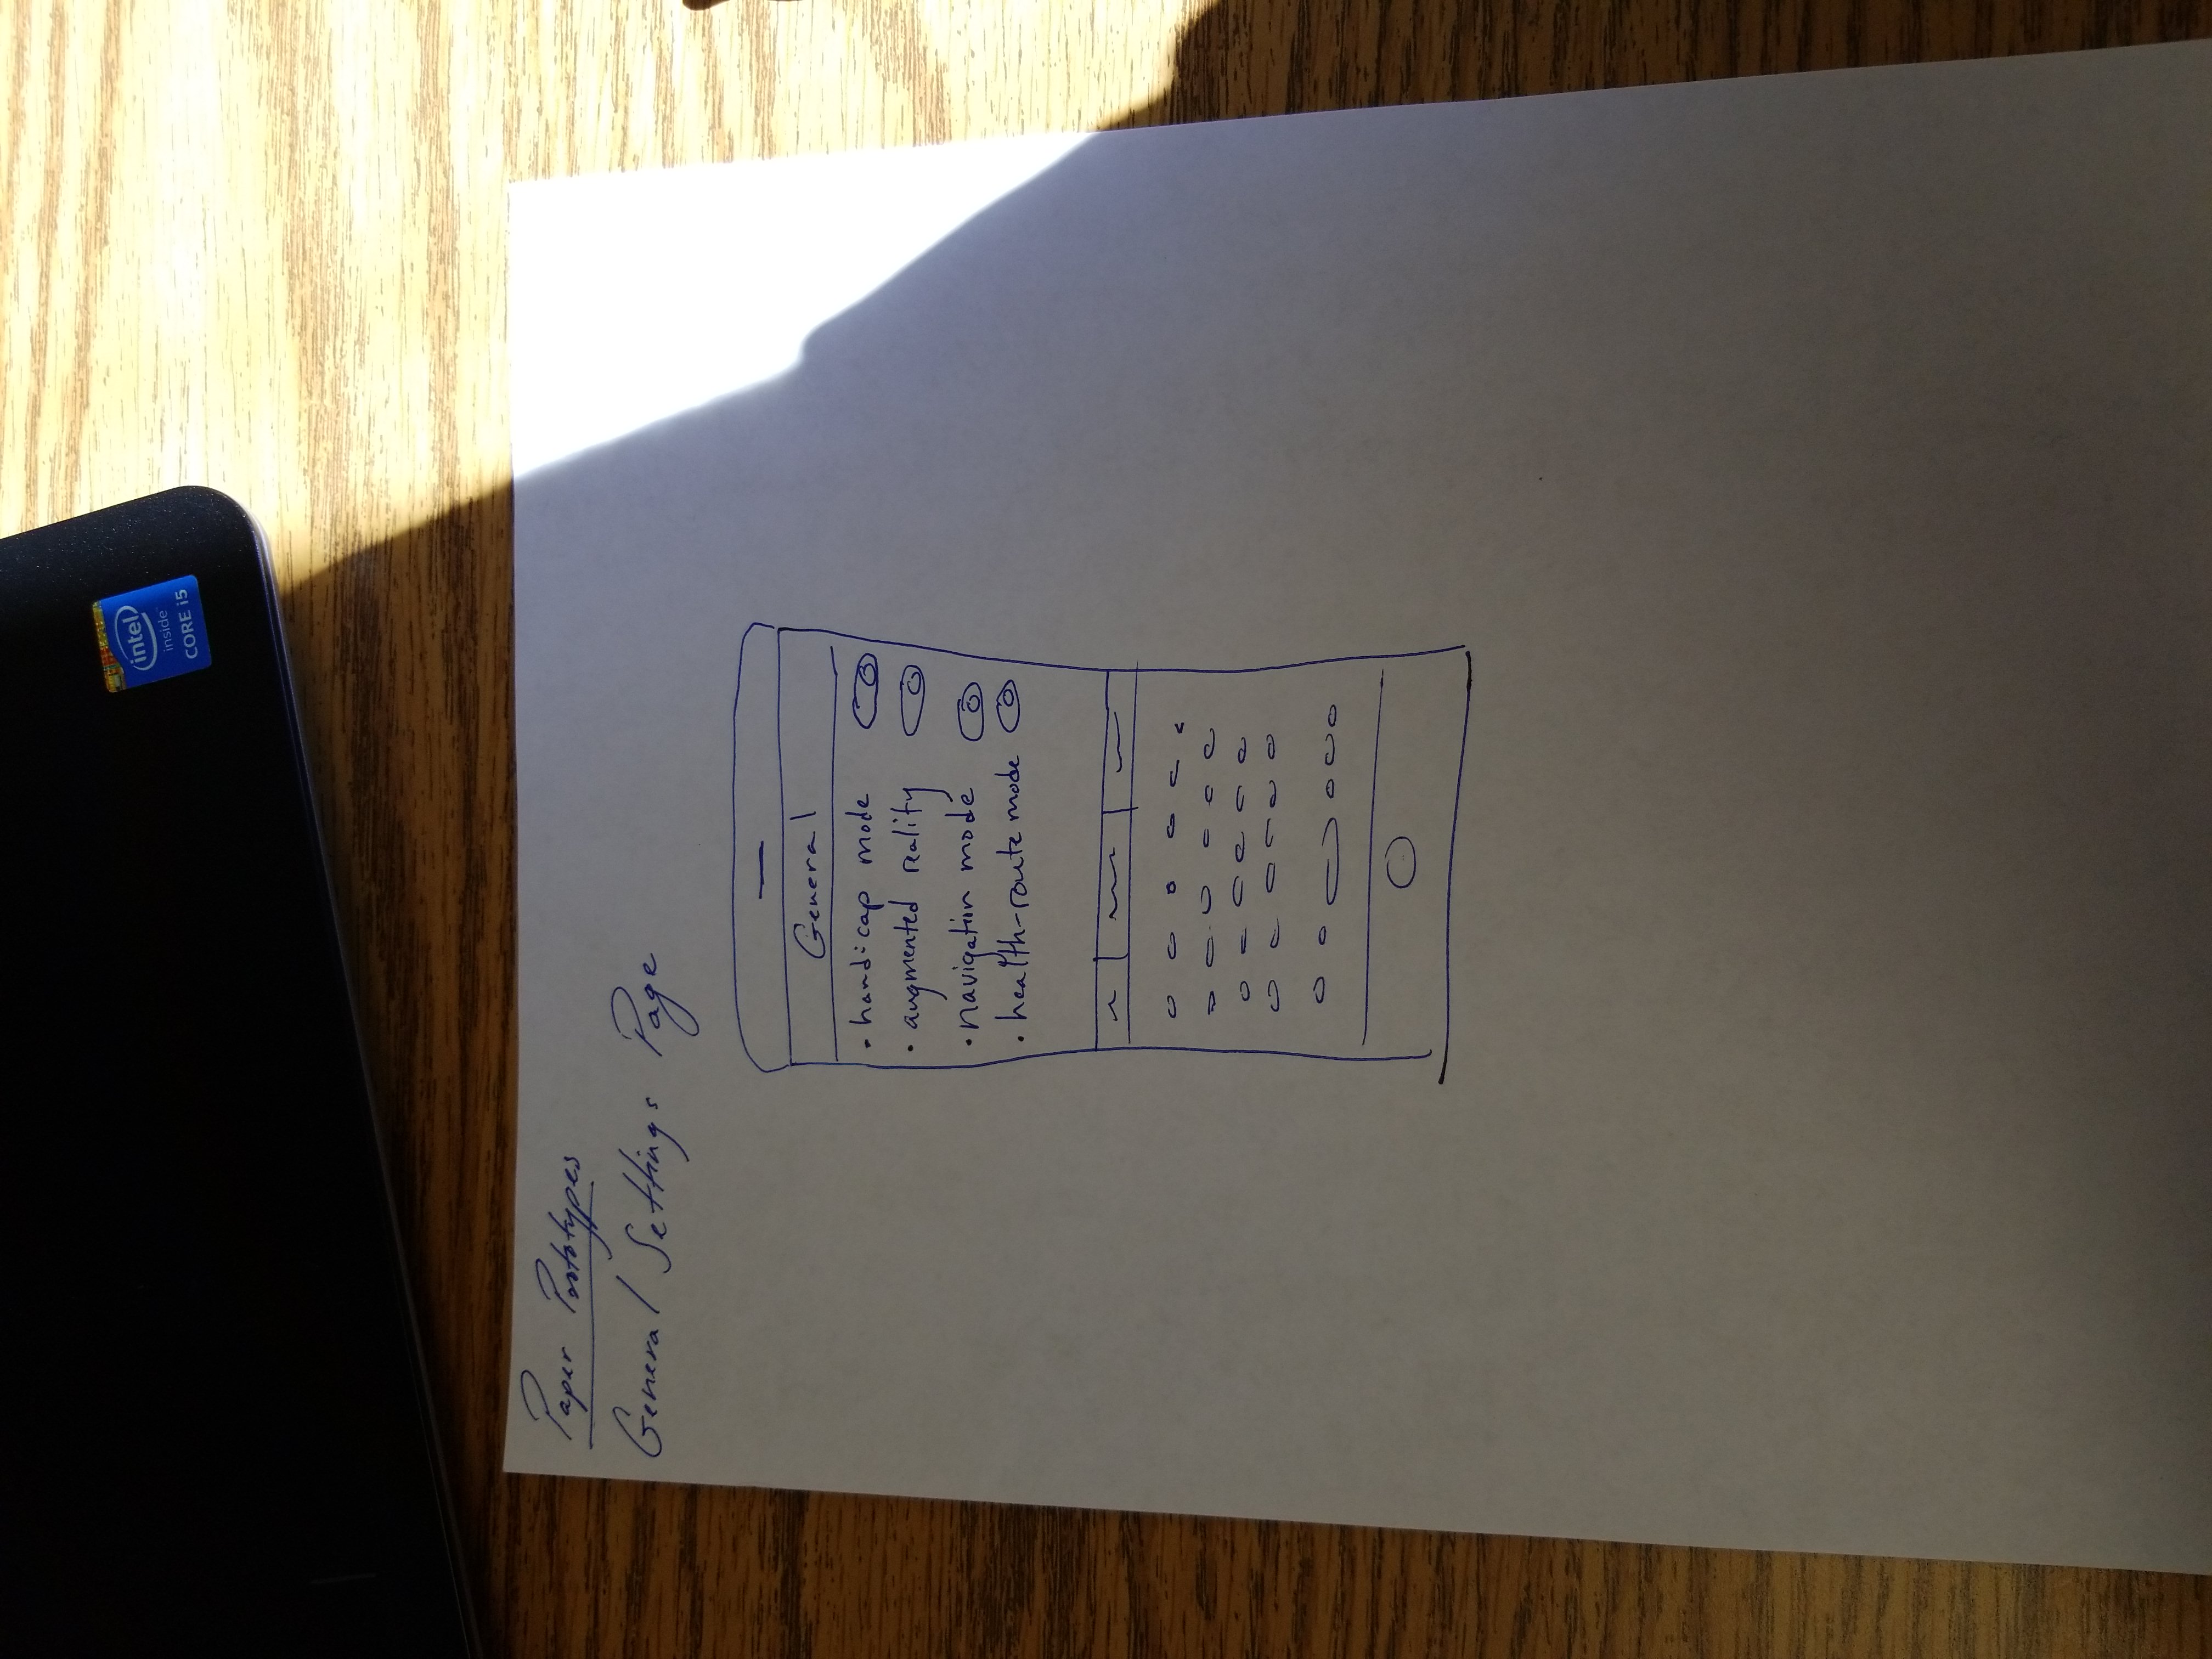 intel
inside
CORE i5
Paper Prototypes
General Settings Page
General
• handicap mode
• augmented reality
• navigation mode
• health-route mode